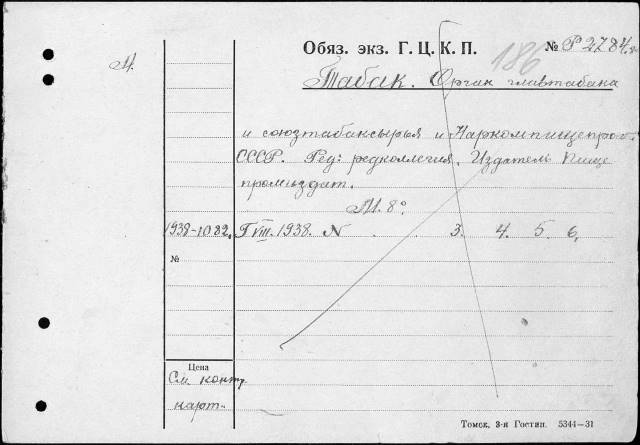 Обяз. экз. Г. Ц. К. П.
186
№ Р 2784
М.
Табак. Орган главтабака
и союзтабаксырья и Наркомпищепром.
СССР. Ред: редколлегия. Издатель Пище
промиздат.
М. 8°
1938-1082. Г VIII. 1938. N . . 3. 4. 5. 6.
№
Цена
См. контр.
карт.
Томск, 3-я Гостип. 5344—31